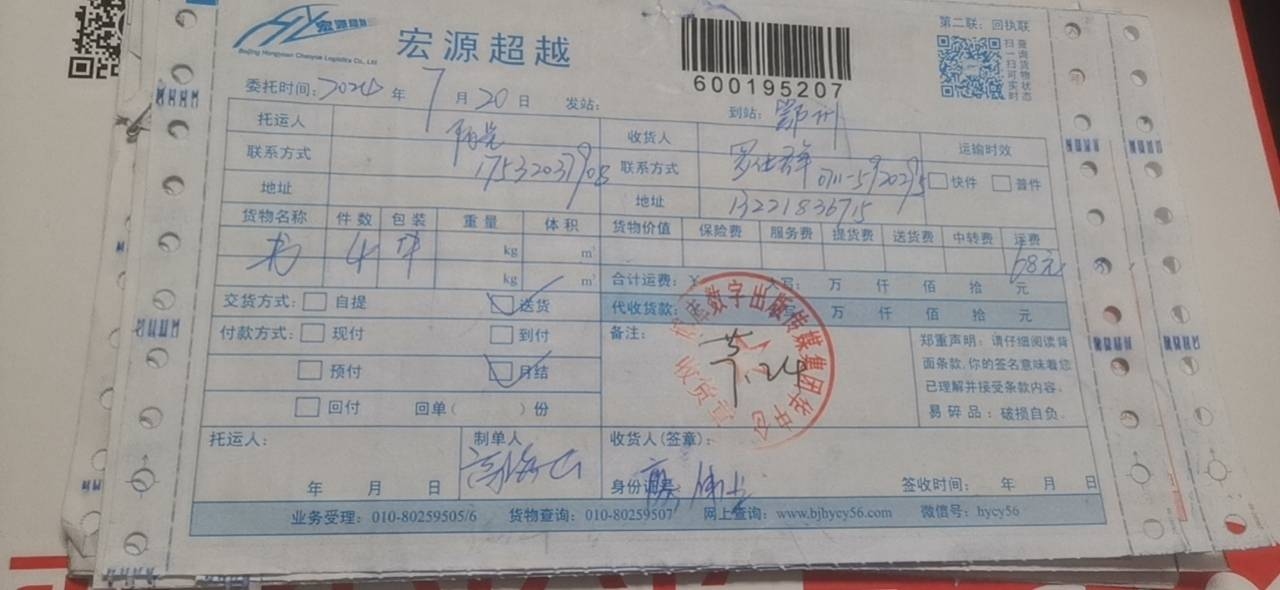 宏源超越
Beijing Hongyuan Chaoyue Logistics Co., Ltd
宏源超越
600195207
第二联:回执联
扫一扫可实查询货物状态
委托时间:2024年7月20日 发站: 到站:鄂州
托运人 收货人 运输时效
联系方式 17532037908 联系方式 0711-5920295 快件 普件
地址 地址 13221836715
货物名称 件数 包装 重量 体积 货物价值 保险费 服务费 提货费 送货费 中转费 运费
书 4件 kg m³ 68元
kg m³ 合计运费:¥ 写: 万 仟 佰 拾 元
交货方式: 自提 送货 代收货款: 万 仟 佰 拾 元
付款方式: 现付 到付 备注:
预付 月结
回付 回单( )份
郑重声明:请仔细阅读背
面条款,你的签名意味着您
已理解并接受条款内容。
易碎品:破损自负。
数字出版传媒集团华中仓
收货章
7.24
托运人: 制单人 收货人(签章):
年 月 日 身份证号 签收时间: 年 月 日
业务受理:010-80259505/6 货物查询:010-80259507 网上查询:www.bjhycy56.com 微信号:hycy56